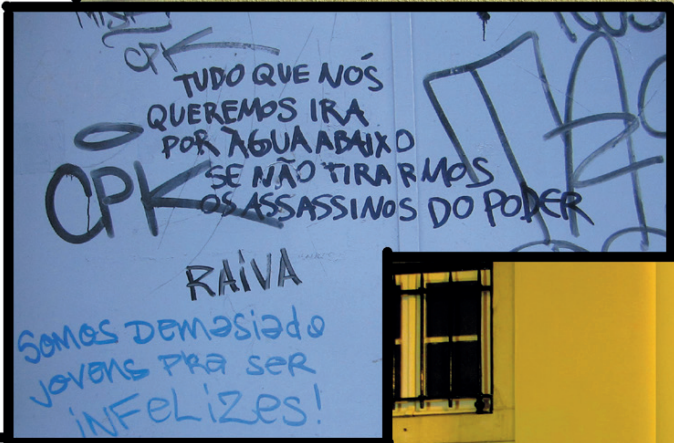 CPK
TUDO QUE NÓS
QUEREMOS IRA
POR ÀGUA ABAIXO
SE NÃO TIRARMOS
OS ASSASSINOS DO PODER
CPK
RAIVA
SOMOS DEMASIADO
JOVENS PRA SER
INFELIZES!